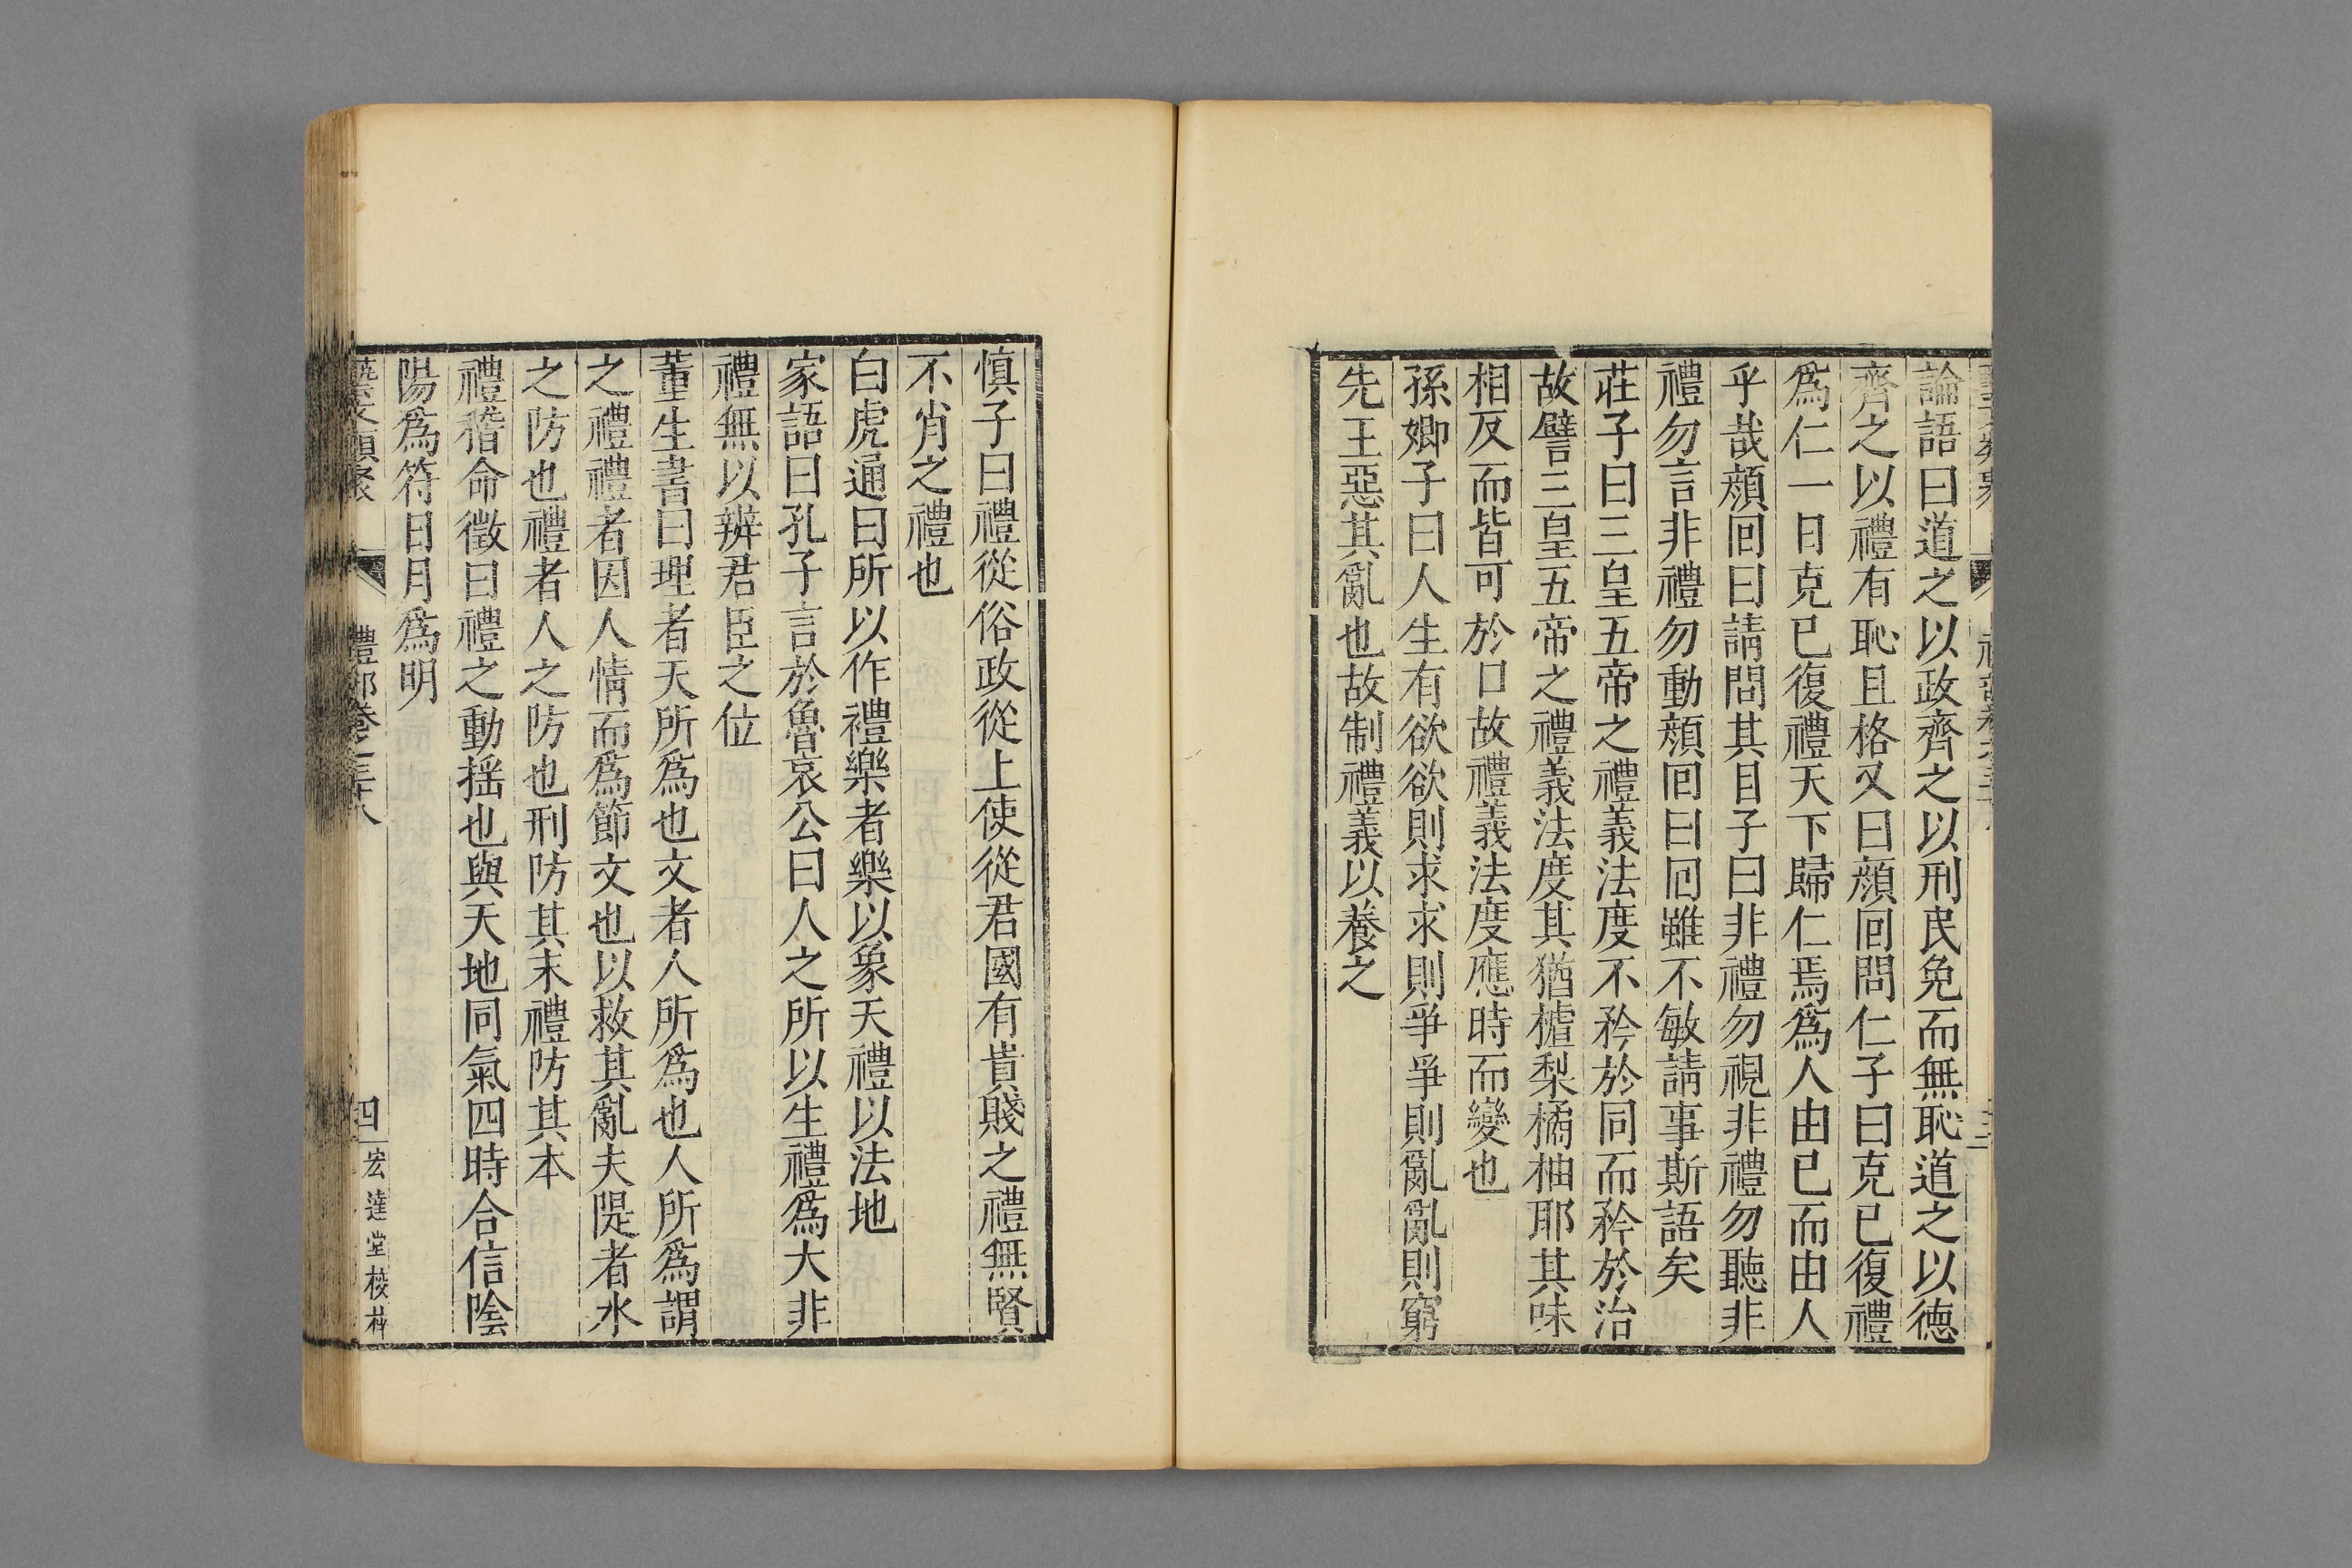 論語曰道之以政齊之以刑民免而無恥道之以德
齊之以禮有恥且格又曰顏回問仁子曰克已復禮
爲仁一日克已復禮天下歸仁焉爲人由已而由人
乎哉顏回曰請問其目子曰非禮勿視非禮勿聽非
禮勿言非禮勿動顏回曰回雖不敏請事斯語矣
莊子曰三皇五帝之禮義法度不矜於同而矜於治
故譬三皇五帝之禮義法度其猶樝梨橘柚耶其味
相反而皆可於口故禮義法度應時而變也
孫卿子曰人生有欲欲則求求則爭爭則亂亂則窮
先王惡其亂也故制禮義以養之
慎子曰禮從俗政從上使從君國有貴賤之禮無賢
不肖之禮也
白虎通曰所以作禮樂者樂以象天禮以法地
家語曰孔子言於魯哀公曰人之所以生禮爲大非
禮無以辨君臣之位
董生書曰理者天所爲也文者人所爲也人所爲謂
之禮禮者因人情而爲節文也以救其亂夫隄者水
之防也禮者人之防也刑防其末禮防其本
禮稽命徵曰禮之動搖也與天地同氣四時合信陰
陽爲符日月爲明
藝文類聚 禮部卷之三十八 四 宏達堂校栞